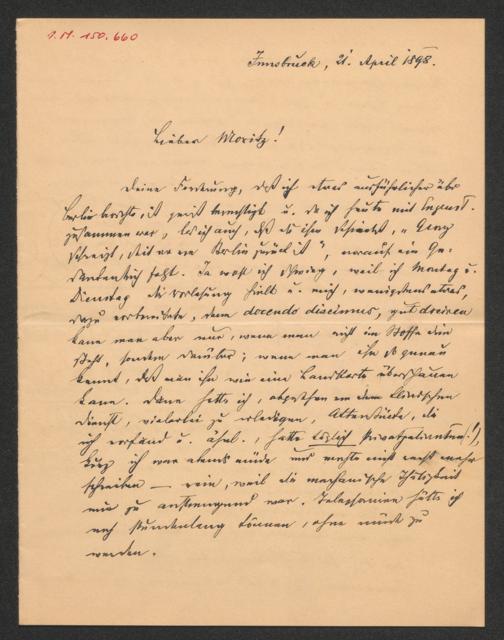 I.N. 150.660
Innsbruck, 21. April 1898.
Lieber Moritz!
Deine Forderung, daß ich etwas ausführlicher über
Berlin berichte, ist berechtigt u. da ich heute mit August
zusammen war, las ich auch, daß du ihm schreibst, „Georg
schweigt, seit er von Berlin zurück ist“, worauf ein Ge-
dankenstrich folgt. Ja wohl ich schwieg, weil ich Montag u.
Dienstag die Vorlesung hielt u. mich, wenigstens etwas,
dazu vorbereitete, denn docendo discimus, gut docieren
kann man aber nur, wenn man nicht im Stoffe drin
steht, sondern darüber; wenn man ihn so genau
kennt, daß man ihn wie eine Landkarte überschauen
kann. Dann hatte ich, abgesehen von dem klinischen
Dienst, vielerlei zu erledigen, Aktenstücke, die
ich vorfand u. ähnl., hatte täglich Privatpatienten (!),
kurz ich war abends müde und mochte nicht recht mehr
schreiben — rein, weil die mechanische Thätigkeit
mir zu anstrengend war. Telephonieren hätte ich
noch stundenlang können, ohne müde zu
werden.